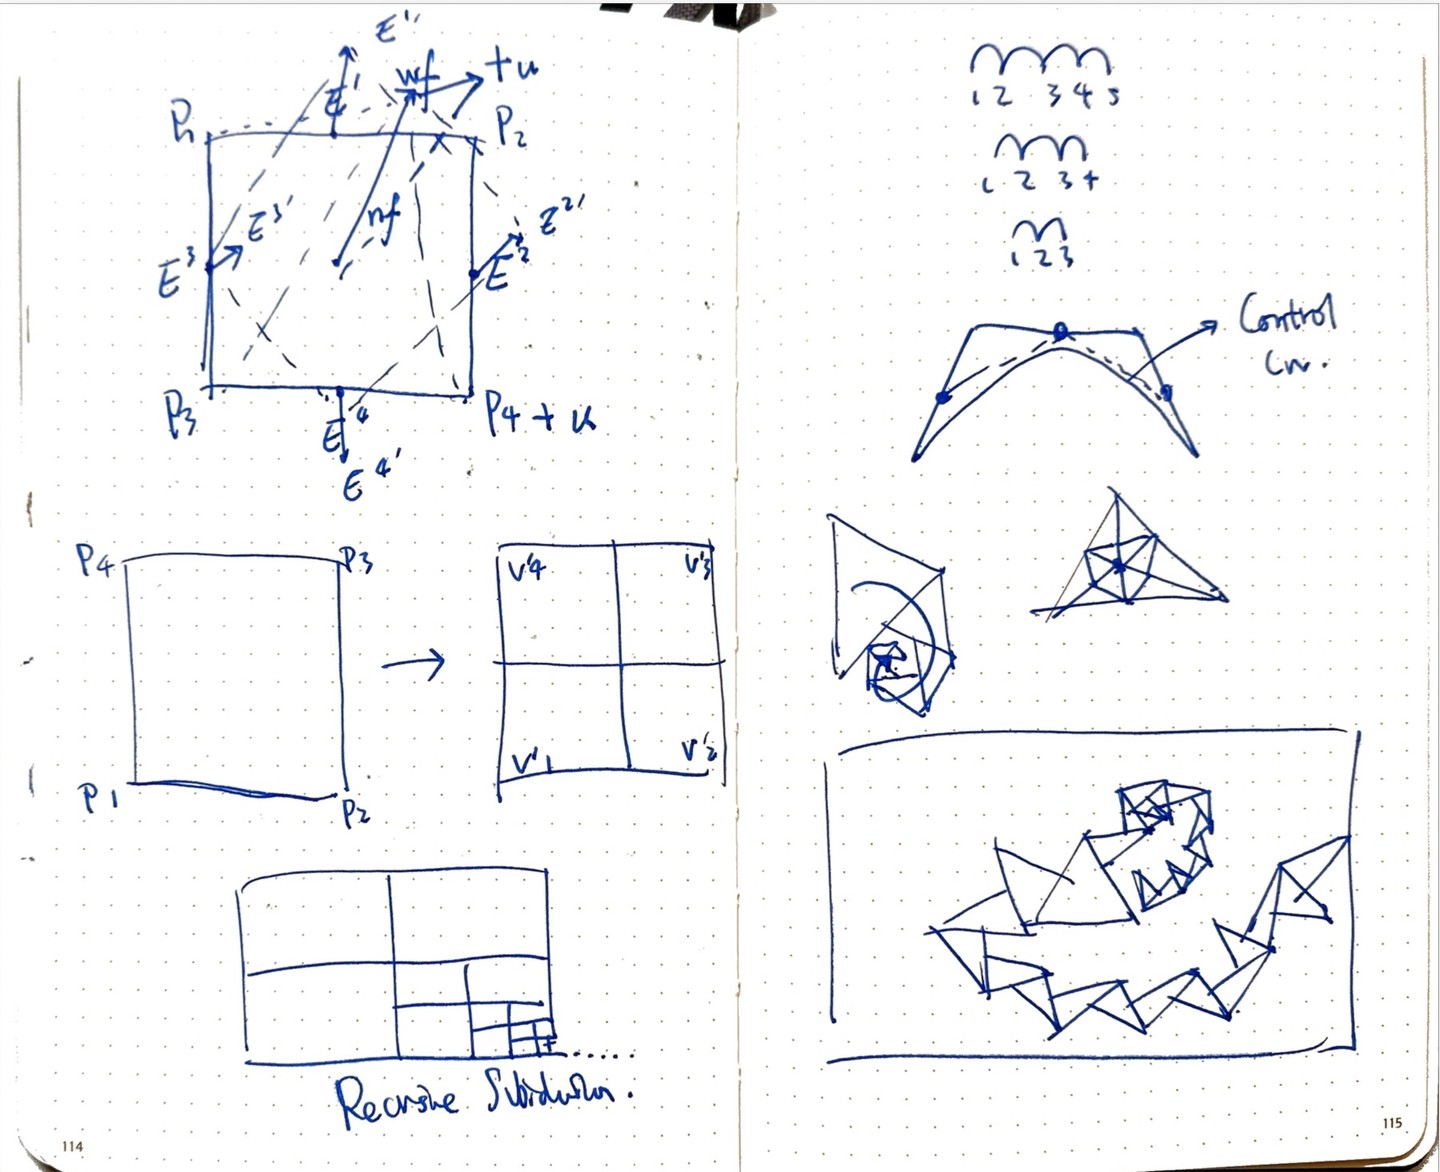 E''
E'
wf
+u
P1
P2
nf
E3'
E2'
E3
E2
P3
E4
P4 + u
E4'
P4
P3
P1
P2
V'4
V'3
V'1
V'2
Recursive Subdivision.
114
1 2 3 4 5
1 2 3 4
1 2 3
Control
115